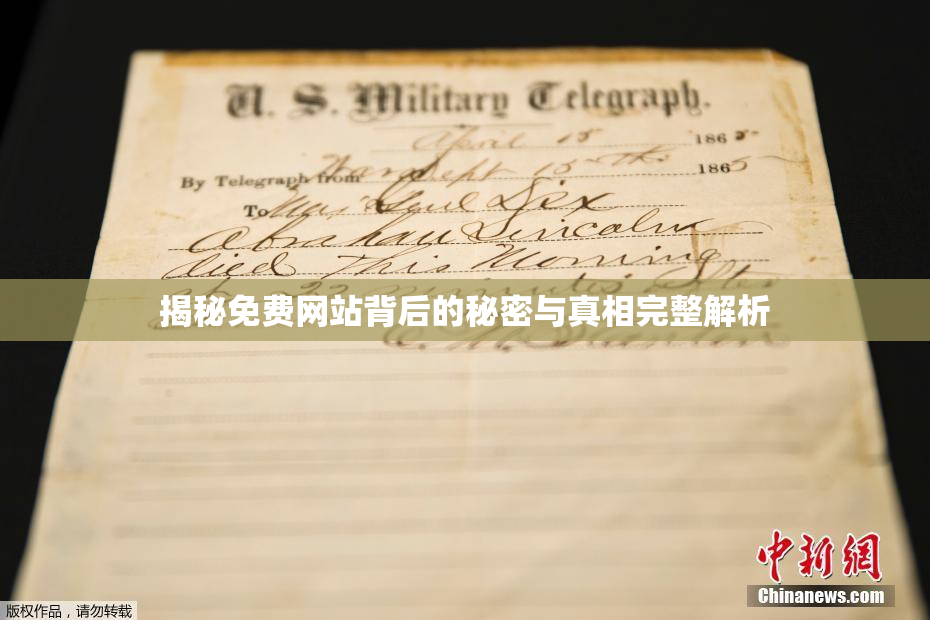 U. S. Military Telegraph.
April 15 1865
By Telegraph from War Dept 15th 1865
To Maj Genl Dix
Abraham Lincoln
died This Morning
22 minutes after
揭秘免费网站背后的秘密与真相完整解析
E. M. Stanton
中新网
Chinanews.com
版权作品，请勿转载